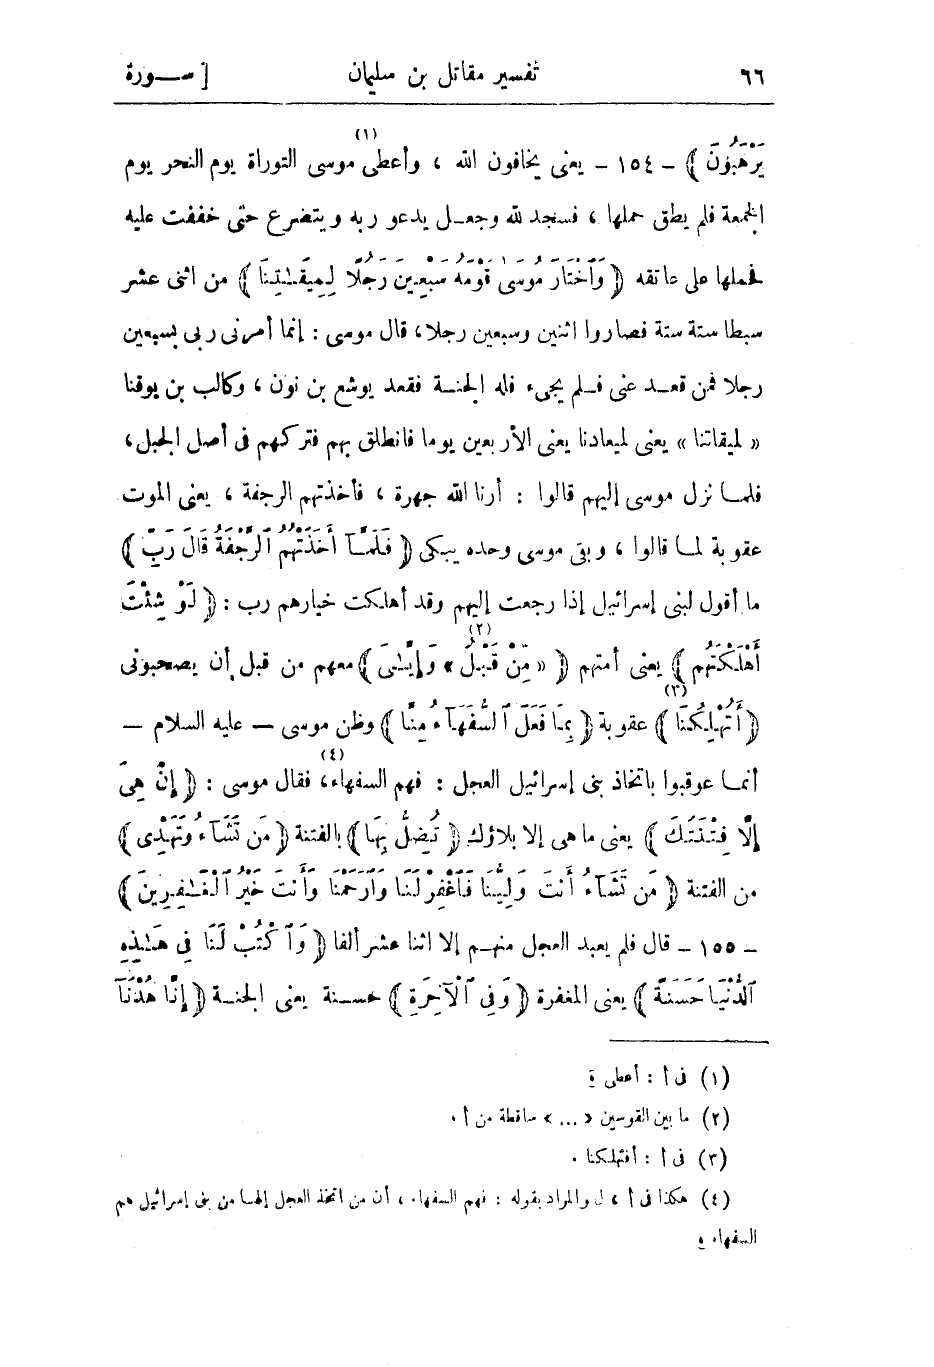 ٦٦ تفسير مقاتل بن سليمان [ ســورة
يَرْهَبُونَ ﴾ ـ ١٥٤ ـ يعنى يخافون الله ، وأعطى (١) موسى التوراة يوم النحر يوم
الجمعة فلم يطق حملها ، فسجد لله وجعـل يدعو ربه ويتضرع حتى خففت عليه
فحملها على عاتقه ﴿ وَٱخْتَارَ مُوسَىٰ قَوْمَهُ سَبْعِينَ رَجُلًا لِمِيقَـٰتِنَا ﴾ من اثنى عشر
سبطا ستة ستة فصاروا اثنين وسبعين رجلا، قال موسى : إنما أمرنى ربى بسبعين
رجلا فمن قعـد عنى فـلم يجىء فله الجنـة فقعد يوشع بن نون ، وكالب بن يوقنا
« لميقاتنا » يعنى لميعادنا يعنى الأربعين يوما فانطلق بهم فتركهم فى أصل الجبل،
فلمـا نزل موسى إليهم قالوا : أرنا الله جهرة ، فأخذتهم الرجفة ، يعنى الموت
عقوبة لمـا قالوا ، وبقى موسى وحده يبكى ﴿ فَلَمَّـآ أَخَذَتْهُمُ ٱلرَّجْفَةُ قَالَ رَبِّ ﴾
ما أقول لبنى إسرائيل إذا رجعت إليهم وقد أهلكت خيارهم رب : ﴿ لَوْ شِئْتَ
أَهْلَكْتَهُم ﴾ يعنى أمتهم ﴿ « مِّنْ قَبْلُ (٢) » وَإِيَّـٰىَ ﴾ معهم من قبل أن يصحبونى
﴿ أَتُهْلِكُنَا (٣) ﴾ عقوبة ﴿ بِمَا فَعَلَ ٱلسُّفَهَآءُ مِنَّا ﴾ وظن موسى — عليه السلام —
أنمـا عوقبوا باتخاذ بنى إسرائيل العجل : فهم السفهاء (٤)، فقال موسى : ﴿ إِنْ هِىَ
إِلَّا فِتْنَتُكَ ﴾ يعنى ما هى إلا بلاؤك ﴿ تُضِلُّ بِهَا ﴾ بالفتنة ﴿ مَن تَشَآءُ وَتَهْدِى ﴾
من الفتنة ﴿ مَن تَشَآءُ أَنتَ وَلِيُّنَا فَٱغْفِرْ لَنَا وَٱرْحَمْنَا وَأَنتَ خَيْرُ ٱلْغَـٰفِرِينَ ﴾
ـ ١٥٥ ـ قال فلم يعبد العجل منهـم إلا اثنا عشر ألفا ﴿ وَٱكْتُبْ لَنَا فِى هَـٰذِهِ
ٱلدُّنْيَا حَسَنَةً ﴾ يعنى المغفرة ﴿ وَفِى ٱلْآخِرَةِ ﴾ حسـنة يعنى الجنـة ﴿ إِنَّا هُدْنَآ
(١) فى أ : أعطى .
(٢) ما بين القوسين « ... » ساقطة من أ .
(٣) فى أ : أفتهلكنا .
(٤) هكذا فى أ ، ل والمراد بقوله : فهم السفهاء ، أن من اتخذ العجل إلهـا من بنى إسرائيل هم
السفهاء .